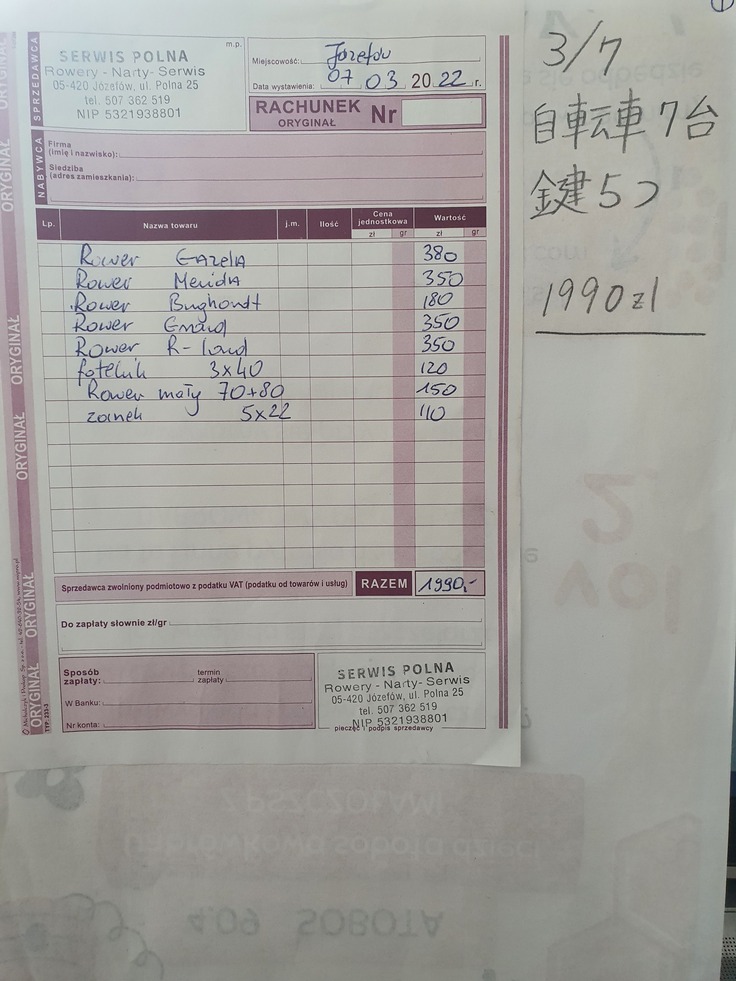 SERWIS POLNA
Rowery - Narty- Serwis
05-420 Józefów, ul. Polna 25
tel. 507 362 519
NIP 5321938801
m.p.
SPRZEDAWCA
Miejscowość: Józefów
Data wystawienia: 07 03 2022 r.
RACHUNEK Nr
ORYGINAŁ
NABYWCA
Firma
(imię i nazwisko):
Siedziba
(adres zamieszkania):
Lp. Nazwa towaru j.m. Ilość Cena jednostkowa Wartość
zł gr zł gr
Rower Gazela 380
Rower Merida 350
Rower 180
Rower 350
Rower 350
fotelik 3x40 120
Rower mały 70+80 150
zamek 5x22 110
Sprzedawca zwolniony podmiotowo z podatku VAT (podatku od towarów i usług) RAZEM 1990,-
Do zapłaty słownie zł/gr
Sposób zapłaty: termin zapłaty
W Banku:
Nr konta:
SERWIS POLNA
Rowery - Narty- Serwis
05-420 Józefów, ul. Polna 25
tel. 507 362 519
NIP 5321938801
pieczęć i podpis sprzedawcy
ORYGINAŁ
ORYGINAŁ
ORYGINAŁ
ORYGINAŁ
ORYGINAŁ
TYP: 231-3
①
3/7
自転車7台
鍵5つ
1990zł